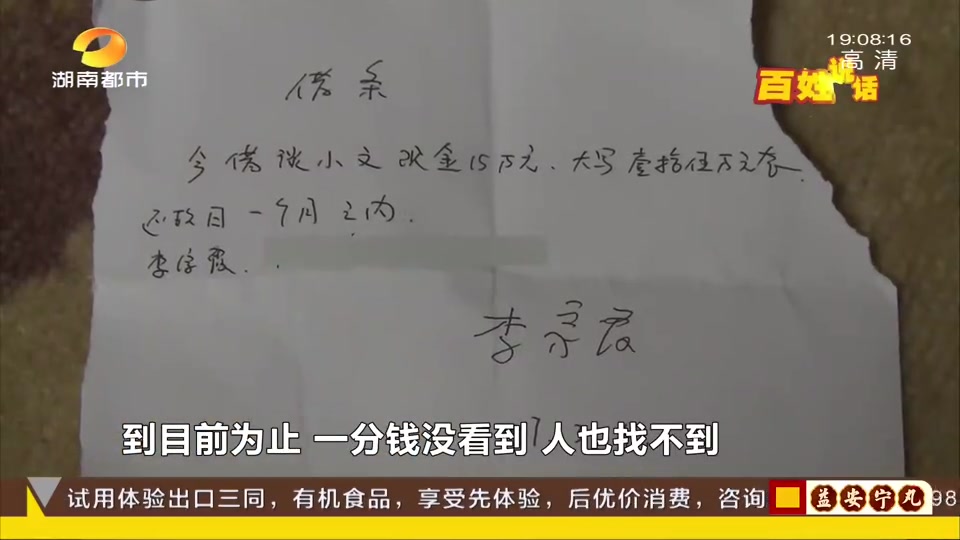 湖南都市
19:08:16
高清
百姓说话
借条
今借谈小文现金15万元、大写壹拾伍万元衣.
还款日一个月之内.
李宗霞.
李宗霞
到目前为止 一分钱没看到 人也找不到
试用体验出口三同，有机食品，享受先体验，后优价消费，咨询
益安宁丸
98